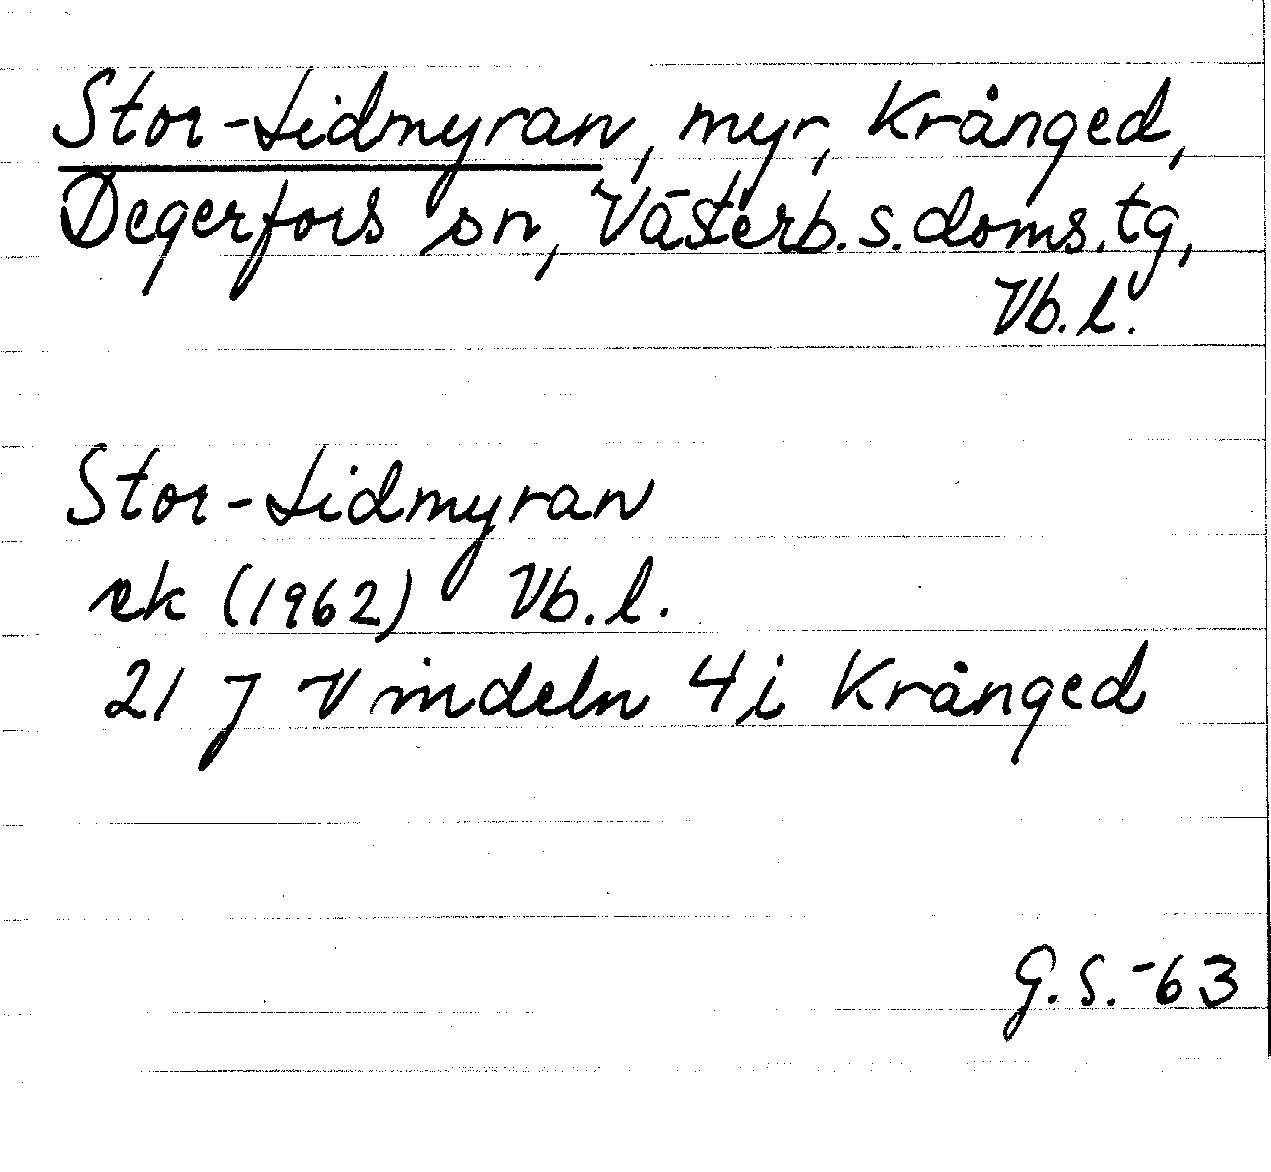 Stor-Lidmyran, myr, Krånged,
Degerfors sn, Västerb. s. doms. tg,
Vb. l.
Stor-Lidmyran
ek (1962) Vb. l.
21 J Vindeln 4 i Krånged
G. S. -63